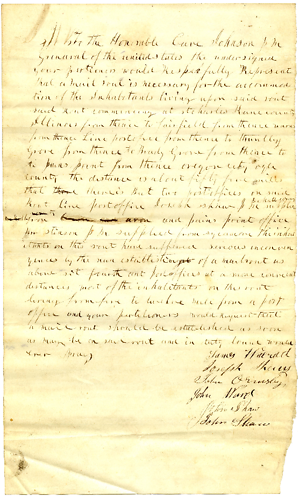 To the Honorable Cave Johnson P M
General of the united states the undersigned
your petitioners would Respectfully Represent
that a mail rout is necessary for the accommoda
tion of the inhabitants living upon said rout
said rout commencing at St Charles Kane county
Illinois from thence to fairfield from thence
from thence Line post office from thence to
Grove from thence to Shady Grove from thence to
pains point from thence oregon city ogle
county the distance is about fifty five miles
that there is but two post offices on said
rout Line post office Joseph Shaw P M
and pains point office
P M supplied from sycamore the inhab
itants on this rout have suffered serious inconven
iences by the non establishment of a mail rout as
above set fourth and Post offices at a more convient
distances most of the inhabitants on this rout
living from five to twelve mile from a post
office and your petitioners would request that
a mail rout should be established as soon
as may be on said rout and in duty bound would
ever Pray
James
Joseph
John Ormsby
John Ward
John Shaw
John Shaw